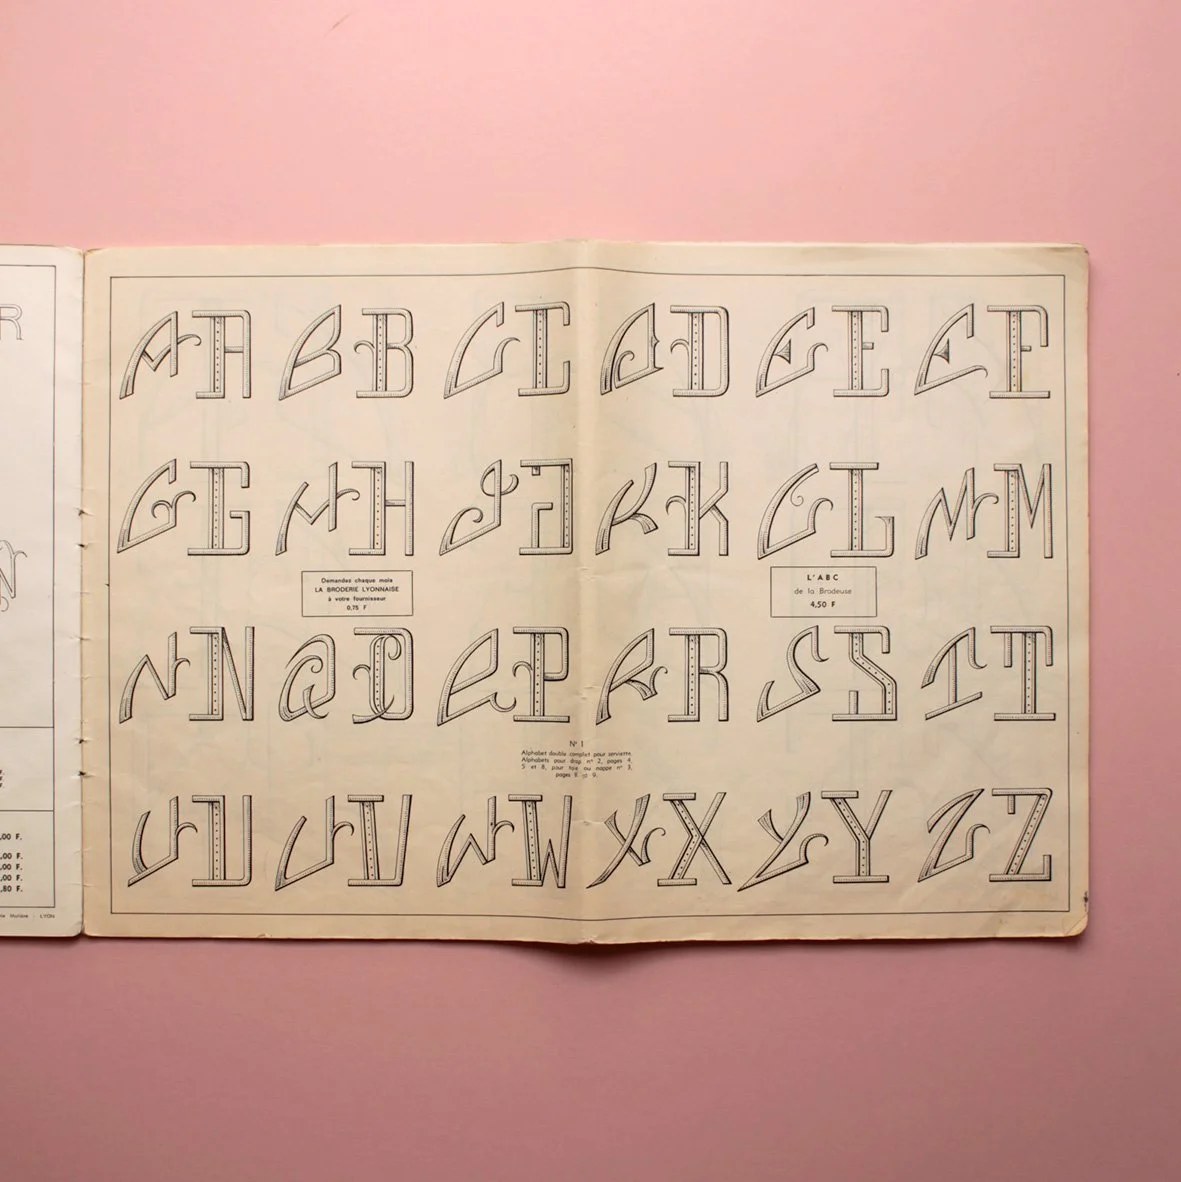 R
N
,00 F.
,00 F.
,00 F.
,00 F.
,80 F.
Molière - LYON
A A B B C C D D E E F F
G G H H J J K K L L M M
Demandez chaque mois
LA BRODERIE LYONNAISE
à votre fournisseur
0,75 F
L'ABC
de la Brodeuse
4,50 F
N N Q Q P P R R S S T T
N° 1
Alphabet double complet pour serviette.
Alphabets pour drap n° 2, pages 4,
5 et 8, pour taie ou nappe n° 3,
pages 8 et 9.
U U V V W W X X Y Y Z Z